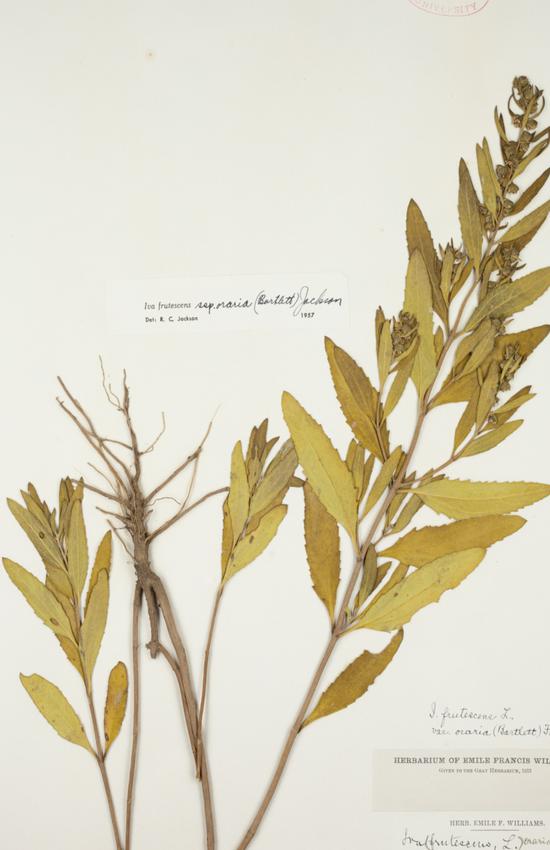 UNIVERSITY
Iva frutescens ssp. oraria (Bartlett) Jackson
Det: R. C. Jackson 1957
I. frutescens L.
var. oraria (Bartlett) F
HERBARIUM OF EMILE FRANCIS WIL
Given to the Gray Herbarium,
HERB. EMILE F. WILLIAMS.
Iva frutescens, L. oraria